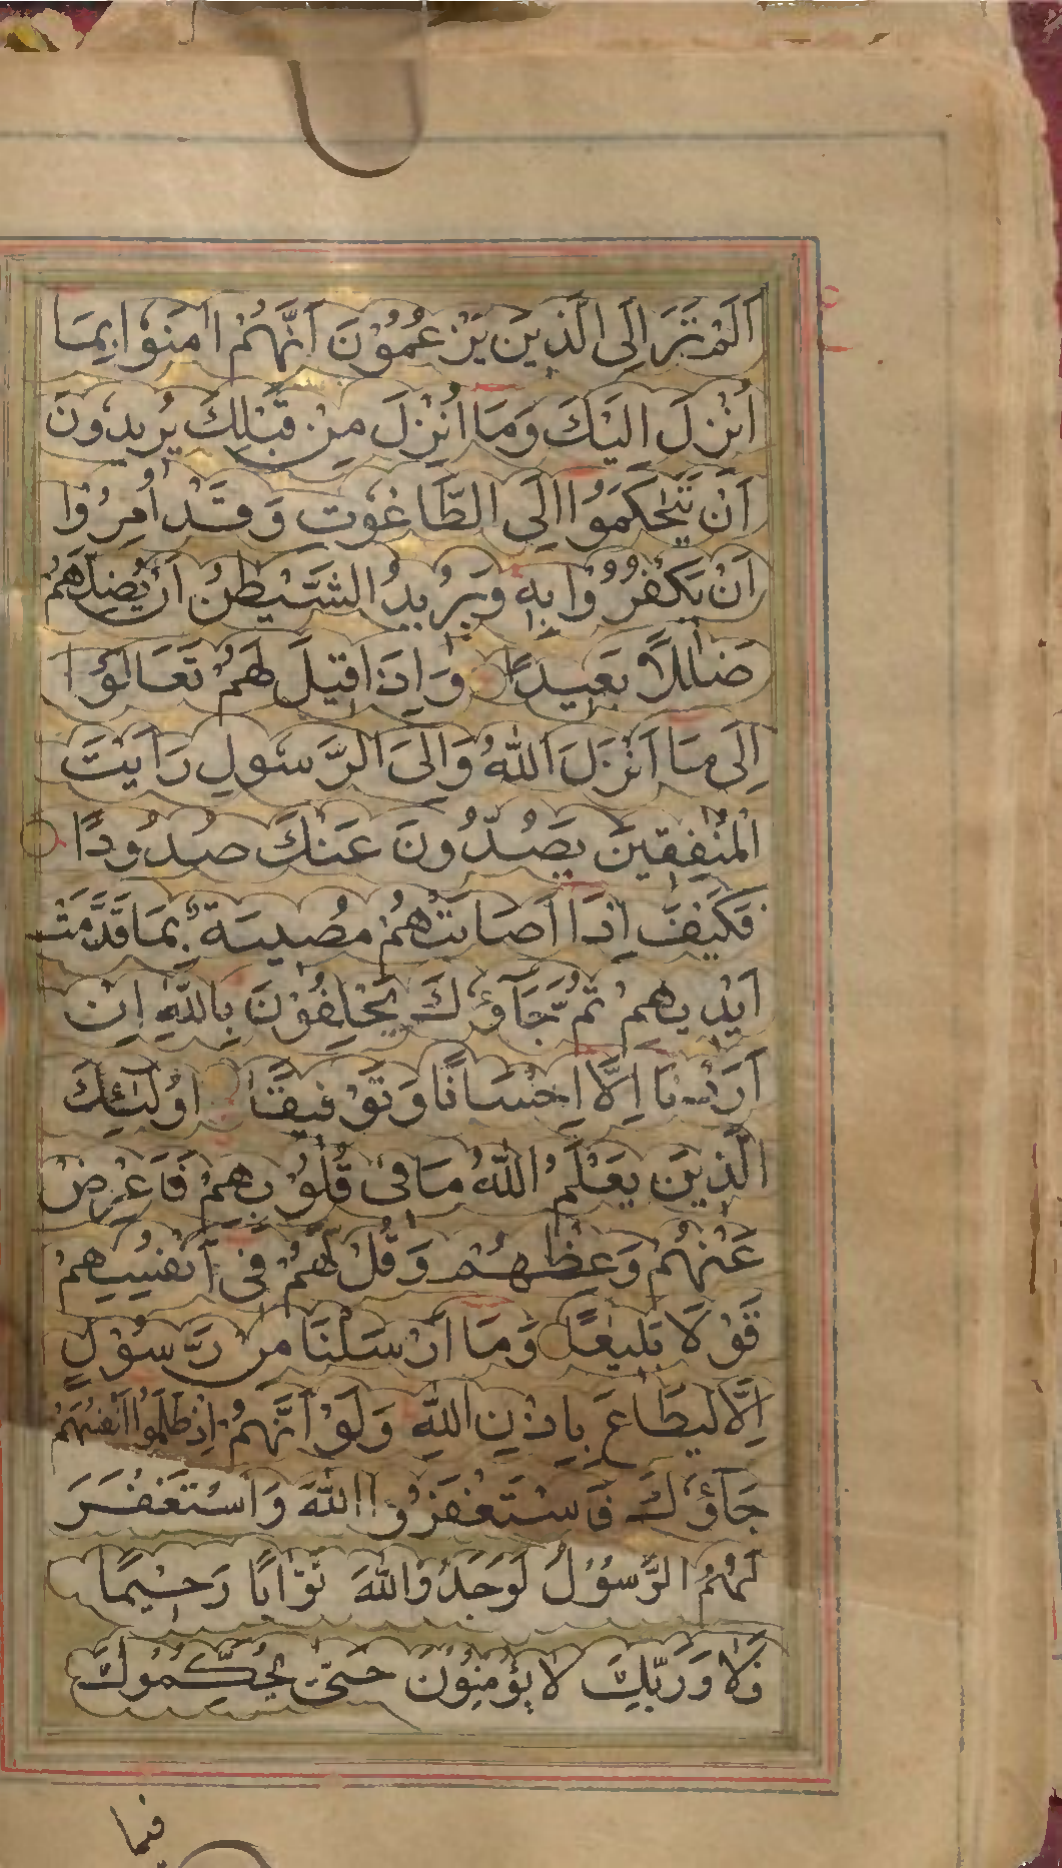 اَلَمْ تَرَ اِلَى الَّذِينَ يَزْعُمُوْنَ اَنَّهُمْ اٰمَنُوْا بِمَا
اُنْزِلَ اِلَيْكَ وَمَا اُنْزِلَ مِنْ قَبْلِكَ يُرِيدُونَ
اَنْ يَتَحَاكَمُوْا اِلَى الطَّاغُوتِ وَقَدْ اُمِرُوْا
اَنْ يَكْفُرُوْا بِهٖ وَيُرِيدُ الشَّيْطٰنُ اَنْ يُضِلَّهُمْ
ضَلٰلًا بَعِيدًا وَاِذَا قِيْلَ لَهُمْ تَعَالَوْا
اِلٰى مَا اَنْزَلَ اللّٰهُ وَاِلَى الرَّسُولِ رَاَيْتَ
الْمُنٰفِقِيْنَ يَصُدُّوْنَ عَنْكَ صُدُودًا
فَكَيْفَ اِذَا اَصَابَتْهُمْ مُصِيبَةٌ بِمَا قَدَّمَتْ
اَيْدِيهِمْ ثُمَّ جَآؤُكَ يَحْلِفُوْنَ بِاللّٰهِ اِنْ
اَرَدْنَا اِلَّا اِحْسَانًا وَتَوْفِيقًا اُولٰئِكَ
الَّذِينَ يَعْلَمُ اللّٰهُ مَا فِى قُلُوْبِهِمْ فَاَعْرِضْ
عَنْهُمْ وَعِظْهُمْ وَقُلْ لَهُمْ فِى اَنْفُسِهِمْ
قَوْلًا بَلِيْغًا وَمَا اَرْسَلْنَا مِنْ رَسُوْلٍ
اِلَّا لِيُطَاعَ بِاِذْنِ اللّٰهِ وَلَوْ اَنَّهُمْ اِذْ ظَلَمُوْا اَنْفُسَهُمْ
جَآؤُكَ فَاسْتَغْفَرُوا اللّٰهَ وَاسْتَغْفَرَ
لَهُمُ الرَّسُوْلُ لَوَجَدُوا اللّٰهَ تَوَّابًا رَحِيْمًا
فَلَا وَرَبِّكَ لَا يُؤْمِنُوْنَ حَتّٰى يُحَكِّمُوكَ
فيما